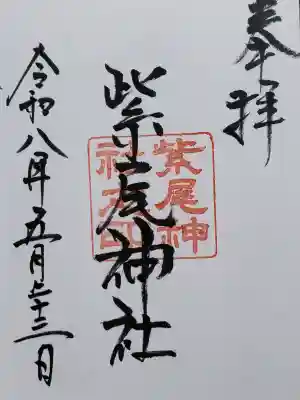 奉拝
紫尾神社
紫尾神社之印
令和八年五月二十三日